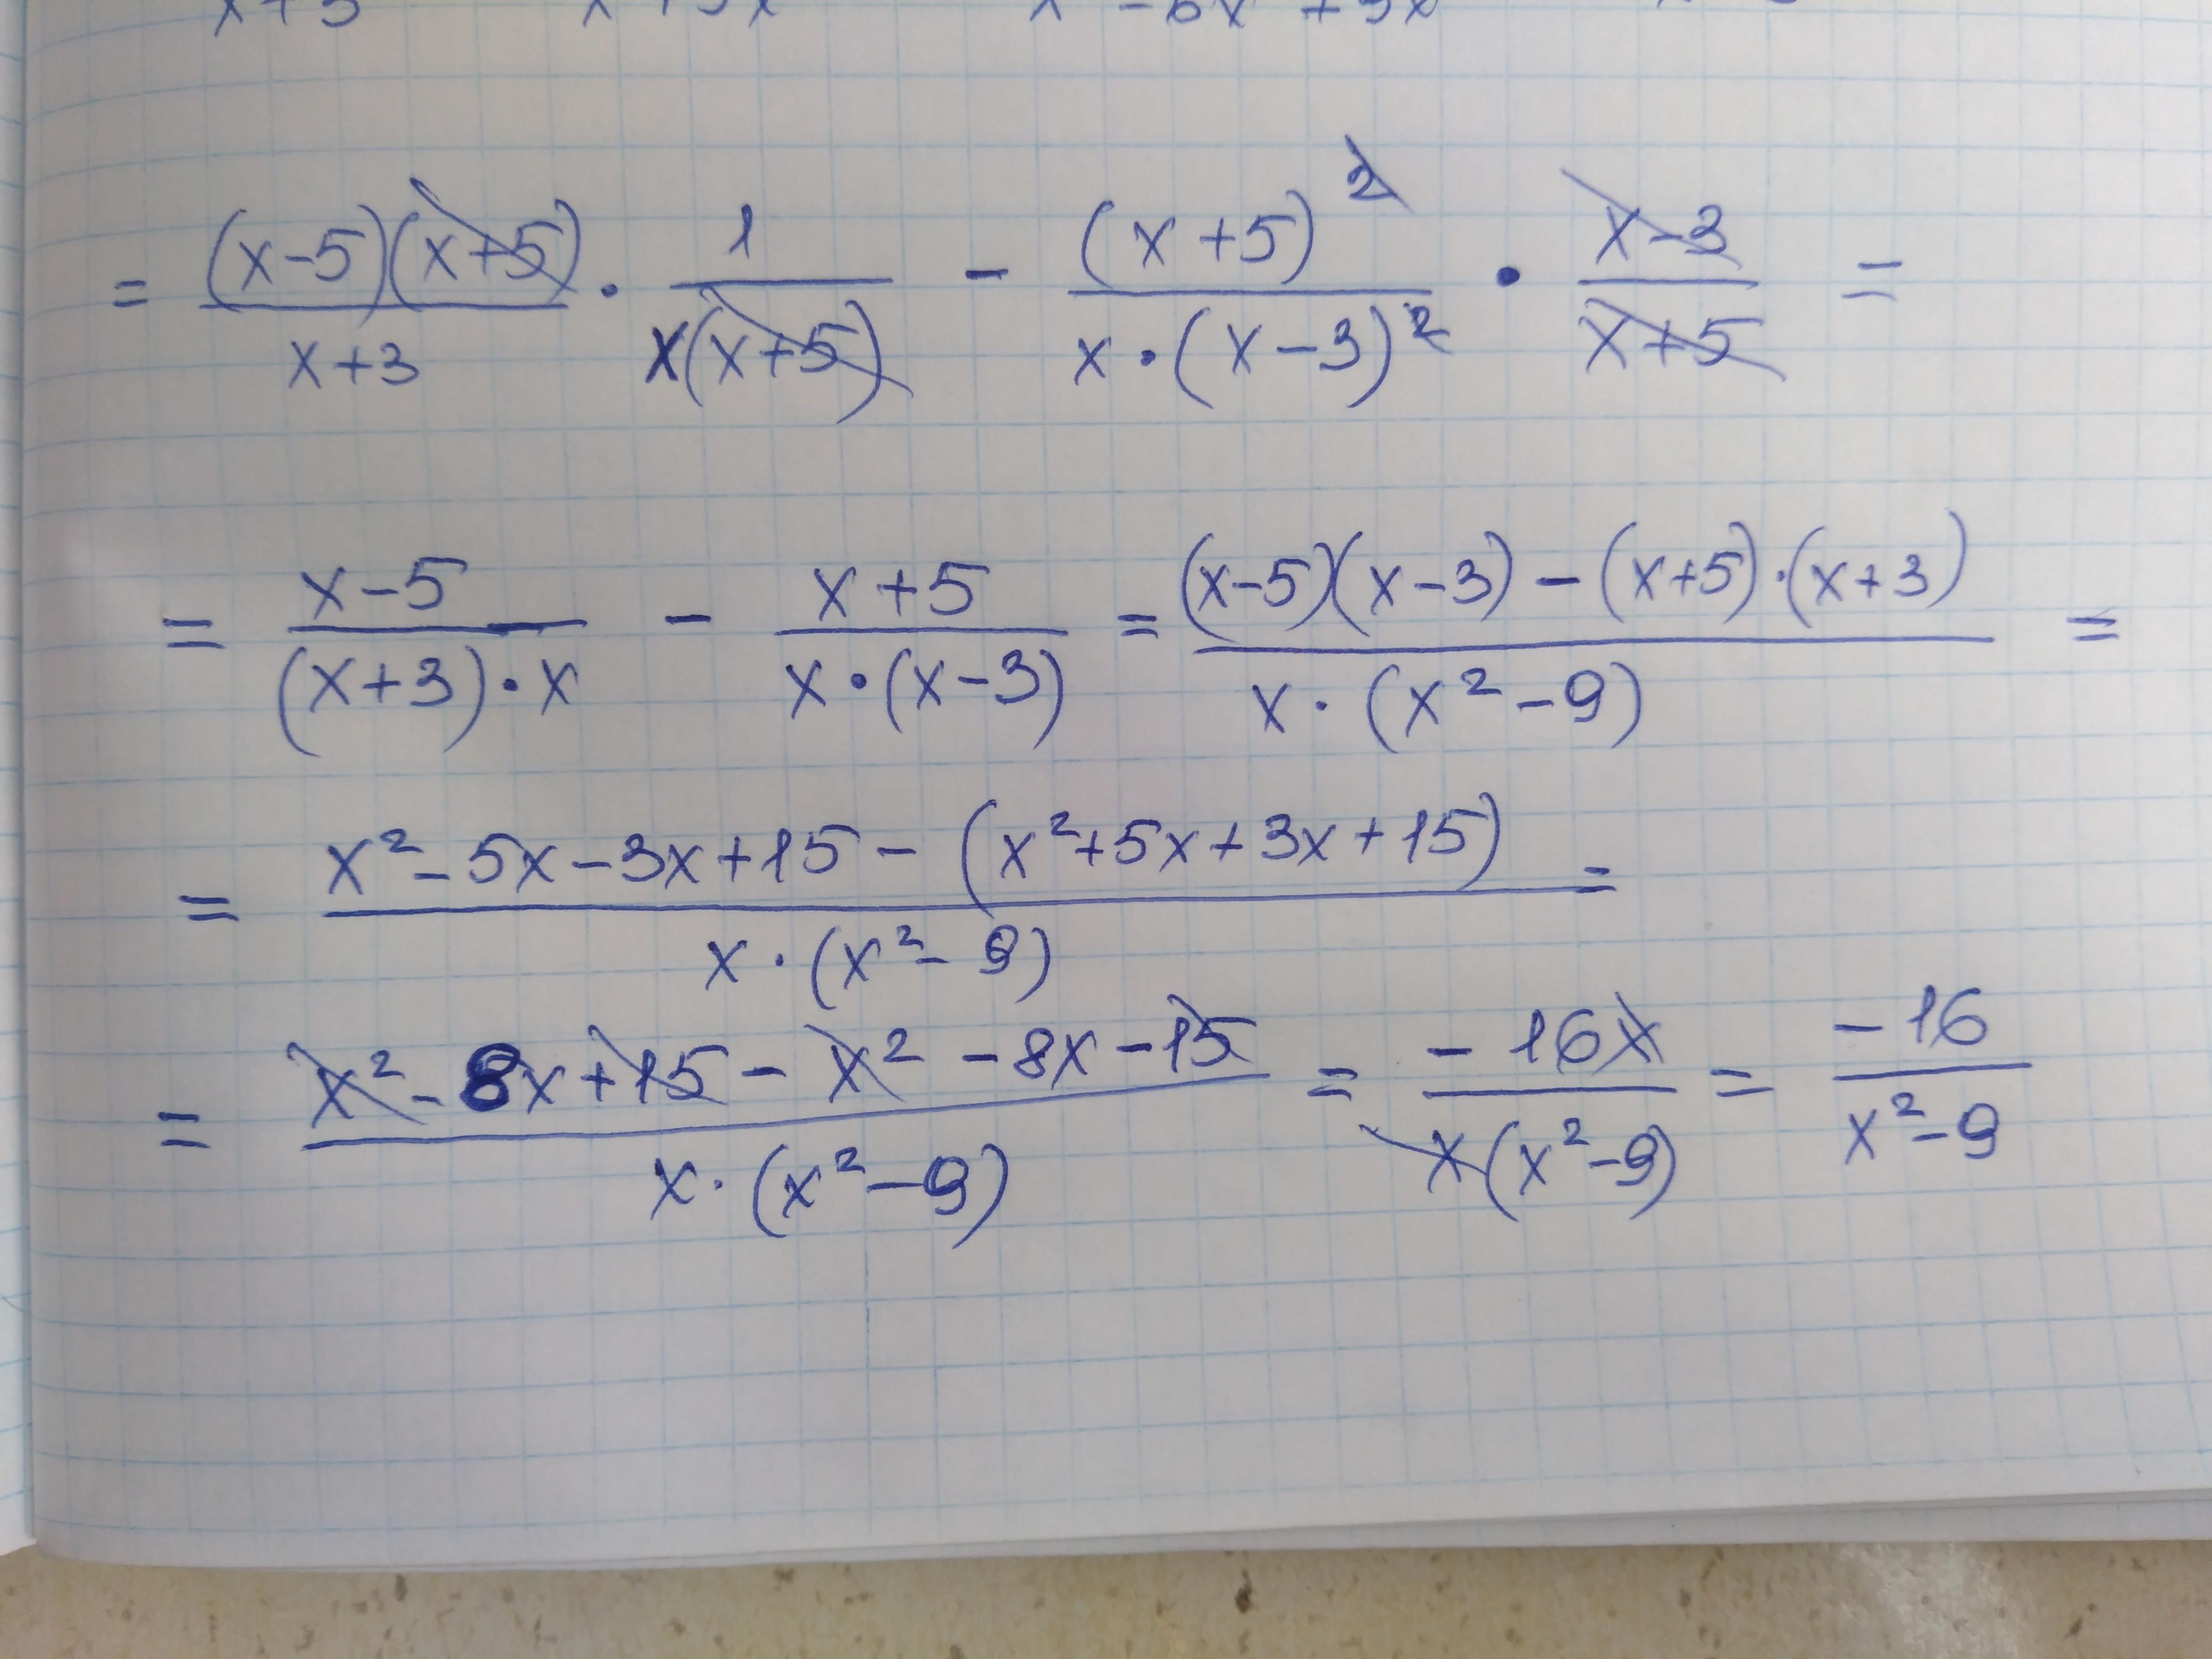 = (x-5)(x+5)/(x+3) · 1/(x(x+5)) - (x+5)²/(x·(x-3)²) · (x-3)/(x+5) =
= (x-5)/((x+3)·x) - (x+5)/(x·(x-3)) = ((x-5)(x-3)-(x+5)·(x+3))/(x·(x²-9)) =
= (x²-5x-3x+15-(x²+5x+3x+15))/(x·(x²-9)) =
= (x²-8x+15-x²-8x-15)/(x·(x²-9)) = -16x/(x(x²-9)) = -16/(x²-9)